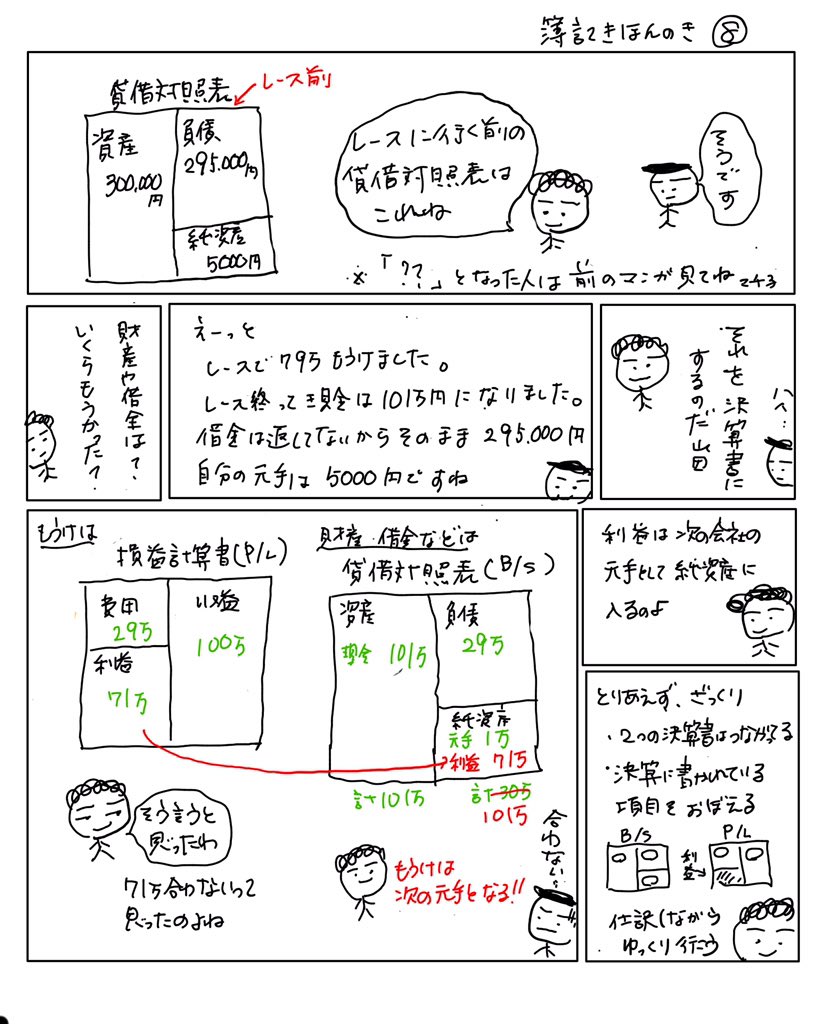 簿記きほんのき ⑧
貸借対照表
レース前
資産
300,000
円
負債
295.000円
純資産
5000円
レースに行く前の
貸借対照表は
これね
そうです
※「??」となった人は前のマンガ見てね
それを決算書に
するのだ山田
ハヘ…
えーっと
レースで79万もうけました。
レース終って現金は101万円になりました。
借金は返してないからそのまま295.000円
自分の元手は5000円ですね
財産や借金は?
いくらもうかった?
もうけは
損益計算書(P/L)
費用
29万
利益
71万
収益
100万
財産 借金などは
貸借対照表(B/S)
資産
現金 101万
負債
29万
純資産
元手 1万
利益 71万
計101万
計 30万
101万
そう言うと
思ったわ
71万合わないって
思ったのよね
もうけは
次の元手となる!!
合わない…
利益は次の会社の
元手として純資産に
入るのよ
とりあえず、ざっくり
・2つの決算書はつながってる
・決算に書かれている
項目をおぼえる
B/S
利益
P/L
仕訳しながら
ゆっくり行こう